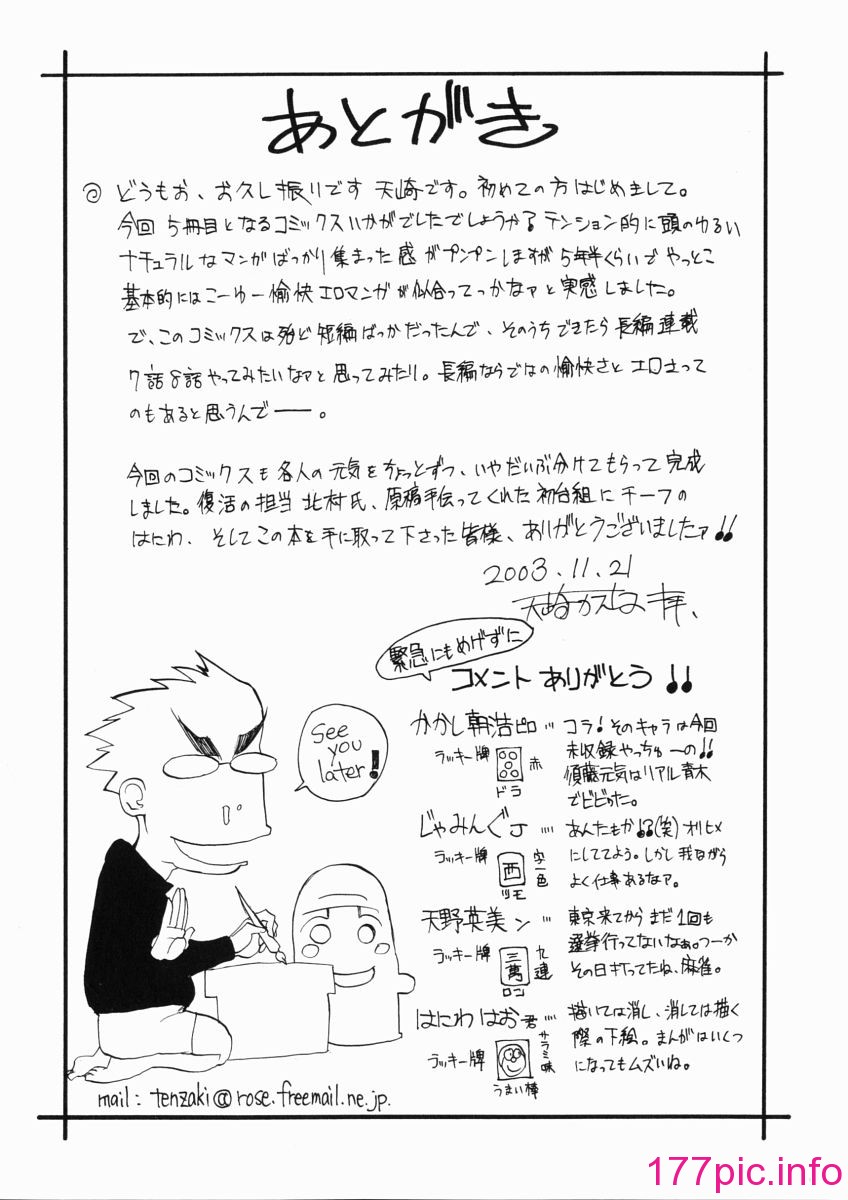 あとがき
どうもお、お久し振りです 天崎です。初めての方はじめまして。
今回 5冊目となるコミックスいかがでしたでしょうか。テンション的に頭のゆるい
ナチュラルなマンガばっかり集まった感がプンプンしますが5年半くらいでやっとこ
基本的にはこーゆー愉快エロマンガが似合ってっかなァと実感しました。
で、このコミックスは殆ど短編ばっかだったんで、そのうちできたら長編連載
7話8話やってみたいなァと思ってみたり。長編ならではの愉快さとエロさって
のもあると思うんで──。
今回のコミックスも各人の元気をちょっとずつ、いやだいぶ分けてもらって完成
しました。復活の担当 北村氏、原稿手伝ってくれた初台組にチーフの
はにわ、そしてこの本を手に取って下さった皆様、ありがとうございましたァ!!
2003.11.21
緊急にもめげずに
コメントありがとう!!
See
you
later!
かかし朝浩ピロ… コラ!そのキャラは今回
未収録やっちゅーの!!
須藤元気はリアル青木
でビビった。
ラッキー牌 赤
ドラ
じゃみんぐJ… あんたもか!?(笑)オリヒメ
にしててよう。しかし我ながら
よく仕事あるなァ。
ラッキー牌 西 字一色
ツモ
天野英美ン… 東京来てからまだ1回も
選挙行ってないなぁ。つーか
その日打ってたね、麻雀。
ラッキー牌 三萬 九連
ロン
はにわはお君… 描いては消し、消しては描く
際の下絵。まんがはいくつ
になってもムズいね。
ラッキー牌 サラミ味
うまい棒
mail: tenzaki@rose.freemail.ne.jp.
177pic.info